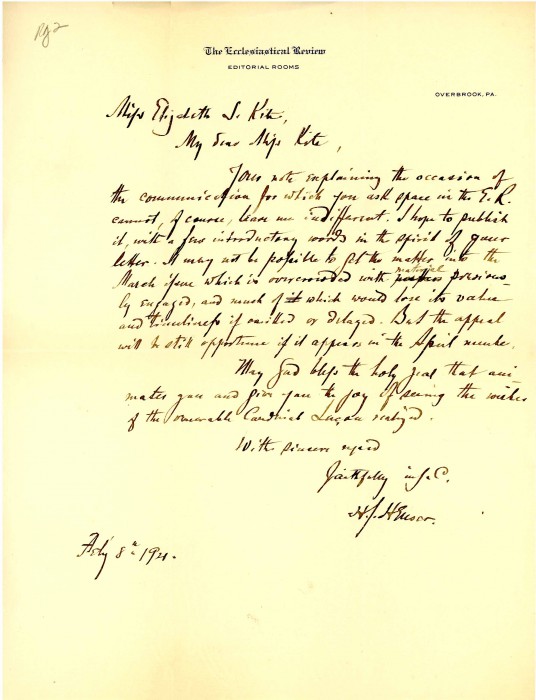 Pg 2
The Ecclesiastical Review
EDITORIAL ROOMS
OVERBROOK, PA.
Miss Elizabeth S. Kite,
My dear Miss Kite,
Your note explaining the occasion of
the communication for which you ask space in the E. R.
cannot, of course, leave me indifferent. I hope to publish
it, with a few introductory words in the spirit of your
letter. It may not be possible to get the matter into the
March issue which is overcrowded with material previous-
ly engaged, and much of it which would lose its value
and timeliness if omitted or delayed. But the appeal
will be still opportune if it appears in the April number.
May God bless the holy zeal that ani-
mates you and give you the joy of seeing the wishes
of the venerable Cardinal Luçon realized.
With sincere regard
Faithfully in J. C.
H. J. Heuser.
Feb'y 8th 1921.